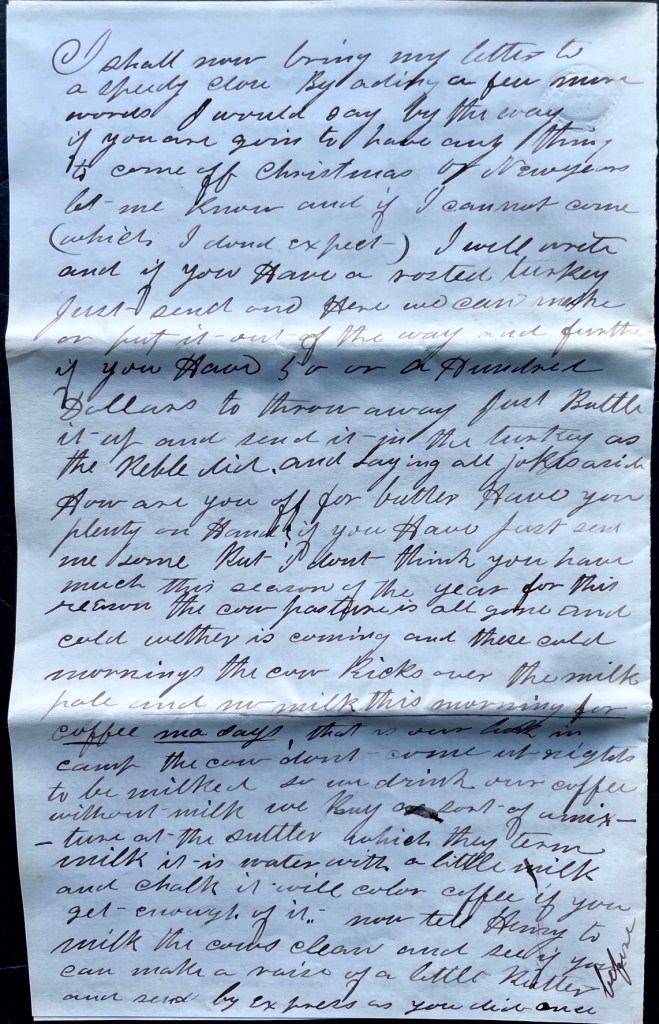 I shall now bring my letter to
a speedy close By ading a few more
words I would say by the way
if you are goin to have any thing
to come off Christmas or Newyears
let me know and if I cannot come
(which I dond expect) I will write
and if you Have a rosted turkey
Just send and Here we can make
or put it out of the way and further
if you Have 50 or a Hundred
Dollars to throw away Just Bottle
it up and send it in the turkey as
the Reble did. and Laying all jokes aside
How are you off for butter Have you
plenty on Hand if you Have Just send
me some But I dont think you have
much this season of the year for this
reason the cow pasture is all gone and
cold wether is coming and these cold
mornings the cow Kicks over the milk
pale and no milk this morning for
coffee ma says, that is our luck in
camp the cow dont come up nights
to be milked so we drink our coffee
without milk we Buy a sort of a mix-
-ture at the suttler which they term
milk it is water with a little milk
and chalk it will color coffee if you
get enough of it.. now tell Henry to
milk the cows clean and see if you
can make a raise of a little Butter
and send by express as you did once
before